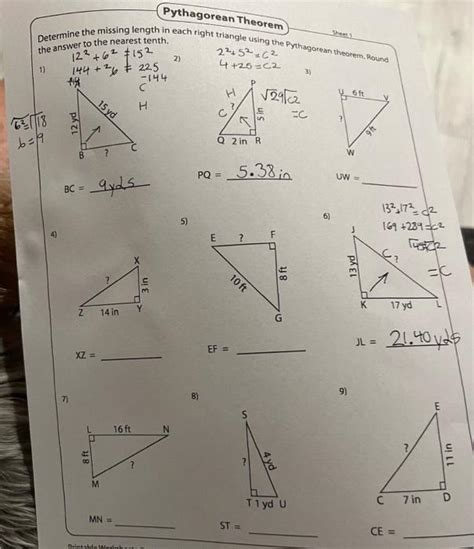 Pythagorean Theorem
Sheet 1
Determine the missing length in each right triangle using the Pythagorean theorem. Round
the answer to the nearest tenth.
1)
12² + 6² = 15²
144 + 2b = 225
-144
C
H
b = 9
12 yd
15 yd
B
?
C
BC = 9yds
2)
2² + 5² = c²
4 + 25 = C2
H
P
√29 √c2
= C
C
?
5 in
Q
2 in
R
PQ = 5.38 in
3)
U
6 ft
V
?
9 ft
W
UW =
4)
X
?
3 in
Z
14 in
Y
XZ =
5)
E
?
F
10 ft
8 ft
G
EF =
6)
13² 17² = c2
169 + 289 = c2
= C
J
C
?
13 yd
K
17 yd
L
JL = 21.40 yds
7)
L
16 ft
N
8 ft
?
M
MN =
8)
S
?
4 yd
T
1 yd
U
ST =
9)
E
?
11 in
C
7 in
D
CE =